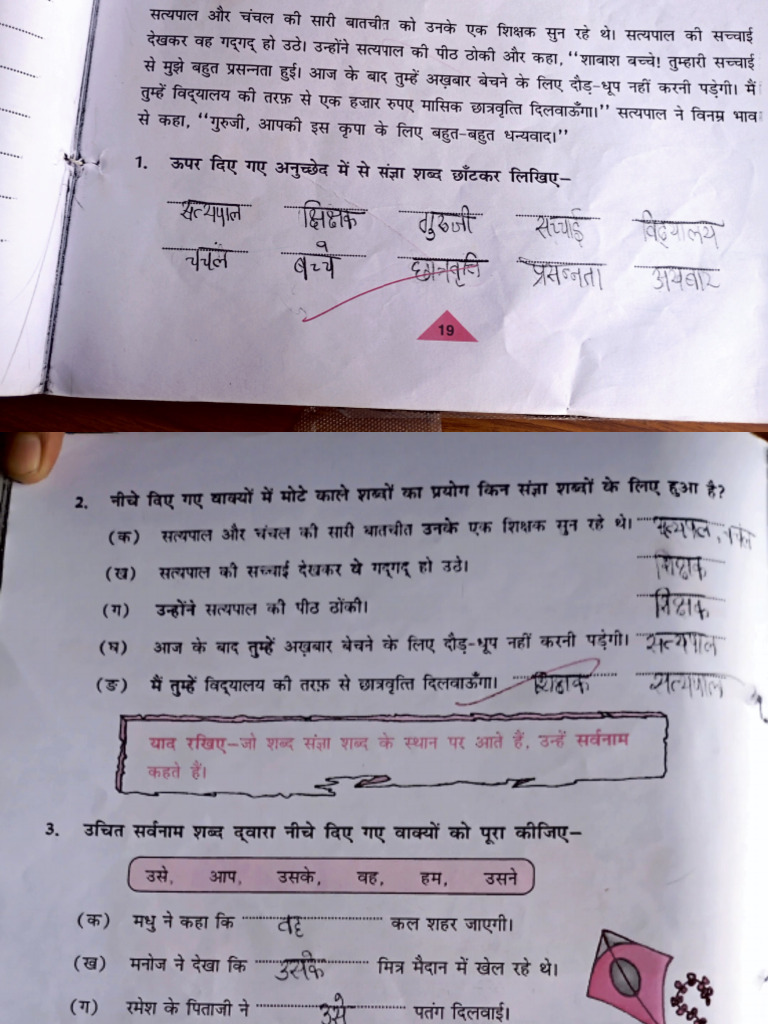 सत्यपाल और चंचल की सारी बातचीत को उनके एक शिक्षक सुन रहे थे। सत्यपाल की सच्चाई
देखकर वह गद्गद् हो उठे। उन्होंने सत्यपाल की पीठ ठोकी और कहा, ‘‘शाबाश बच्चे! तुम्हारी सच्चाई
से मुझे बहुत प्रसन्नता हुई। आज के बाद तुम्हें अख़बार बेचने के लिए दौड़-धूप नहीं करनी पड़ेगी। मैं
तुम्हें विद्यालय की तरफ़ से एक हज़ार रुपए मासिक छात्रवृत्ति दिलवाऊँगा।’’ सत्यपाल ने विनम्र भाव
से कहा, ‘‘गुरुजी, आपकी इस कृपा के लिए बहुत-बहुत धन्यवाद।’’
1. ऊपर दिए गए अनुच्छेद में से संज्ञा शब्द छाँटकर लिखिए–
सत्यपाल क्षिक्षक गुरुजी सच्चाई विद्यालय
चचलं बच्चे प्रसन्नता
19
2. नीचे दिए गए वाक्यों में मोटे काले शब्दों का प्रयोग किन संज्ञा शब्दों के लिए हुआ है?
(क) सत्यपाल और चंचल की सारी बातचीत उनके एक शिक्षक सुन रहे थे। सत्यपाल,
(ख) सत्यपाल की सच्चाई देखकर वे गद्गद् हो उठे।
(ग) उन्होंने सत्यपाल की पीठ ठोंकी।
(घ) आज के बाद तुम्हें अख़बार बेचने के लिए दौड़-धूप नहीं करनी पड़ेगी। सत्यपाल
(ङ) मैं तुम्हें विद्यालय की तरफ़ से छात्रवृत्ति दिलवाऊँगा। सत्यपाल
याद रखिए–जो शब्द संज्ञा शब्द के स्थान पर आते हैं, उन्हें सर्वनाम
कहते हैं।
3. उचित सर्वनाम शब्द द्वारा नीचे दिए गए वाक्यों को पूरा कीजिए–
उसे, आप, उसके, वह, हम, उसने
(क) मधु ने कहा कि वह कल शहर जाएगी।
(ख) मनोज ने देखा कि उसके मित्र मैदान में खेल रहे थे।
(ग) रमेश के पिताजी ने उसे पतंग दिलवाई।